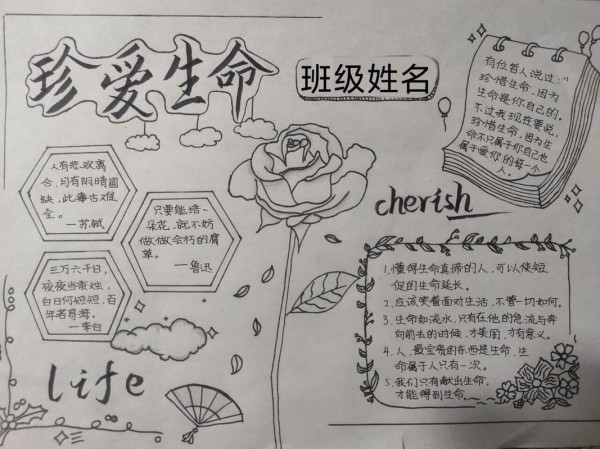 珍爱生命
班级姓名
有位哲人说过:"
珍惜生命,因为
生命是你自己的。
不过我现在要说,
珍惜生命,因为生
命不只属于你自己也
属于爱你的每一个
人。
人有悲欢离
合,月有阴晴圆
缺,此事古难
全。
—苏轼
只要能培一
朵花,就不妨
做做会朽的腐
草。
—鲁迅
三万六千日,
夜夜当秉烛,
白日何短短,百
年苦易满。
—李白
cherish
1.懂得生命真谛的人,可以使短
促的生命延长。
2.应该笑着面对生活,不管一切如何。
3.生命如流水,只有在他的急流与奔
向前去的时候,才美丽,才有意义。
4.人,最宝贵的东西是生命,生
命属于人只有一次。
5.我们只有献出生命,
才能得到生命。
life